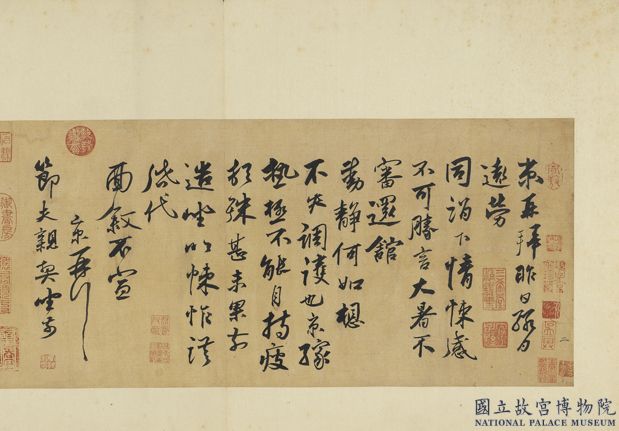 京再拜昨日終日
遠勞
同詣下情悚感
不可勝言大暑不
審還館
動靜何如想
不失調護也京緣
熱極不能自持疲
頓殊甚未果前
造坐次悚怍謹
啟代
面敘不宣
京再拜
節夫親契坐前
國立故宮博物院
NATIONAL PALACE MUSEUM